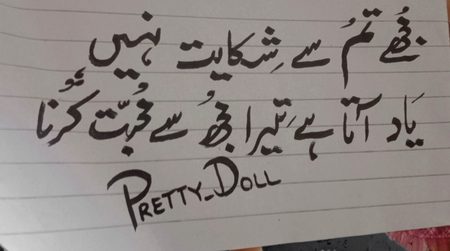 مُجھے تمُ سے شِکایت نہیں
یَاد آتا ہے تیَرا مُجھ سے مُحبّت کَرُنا
PRETTY_DOLL